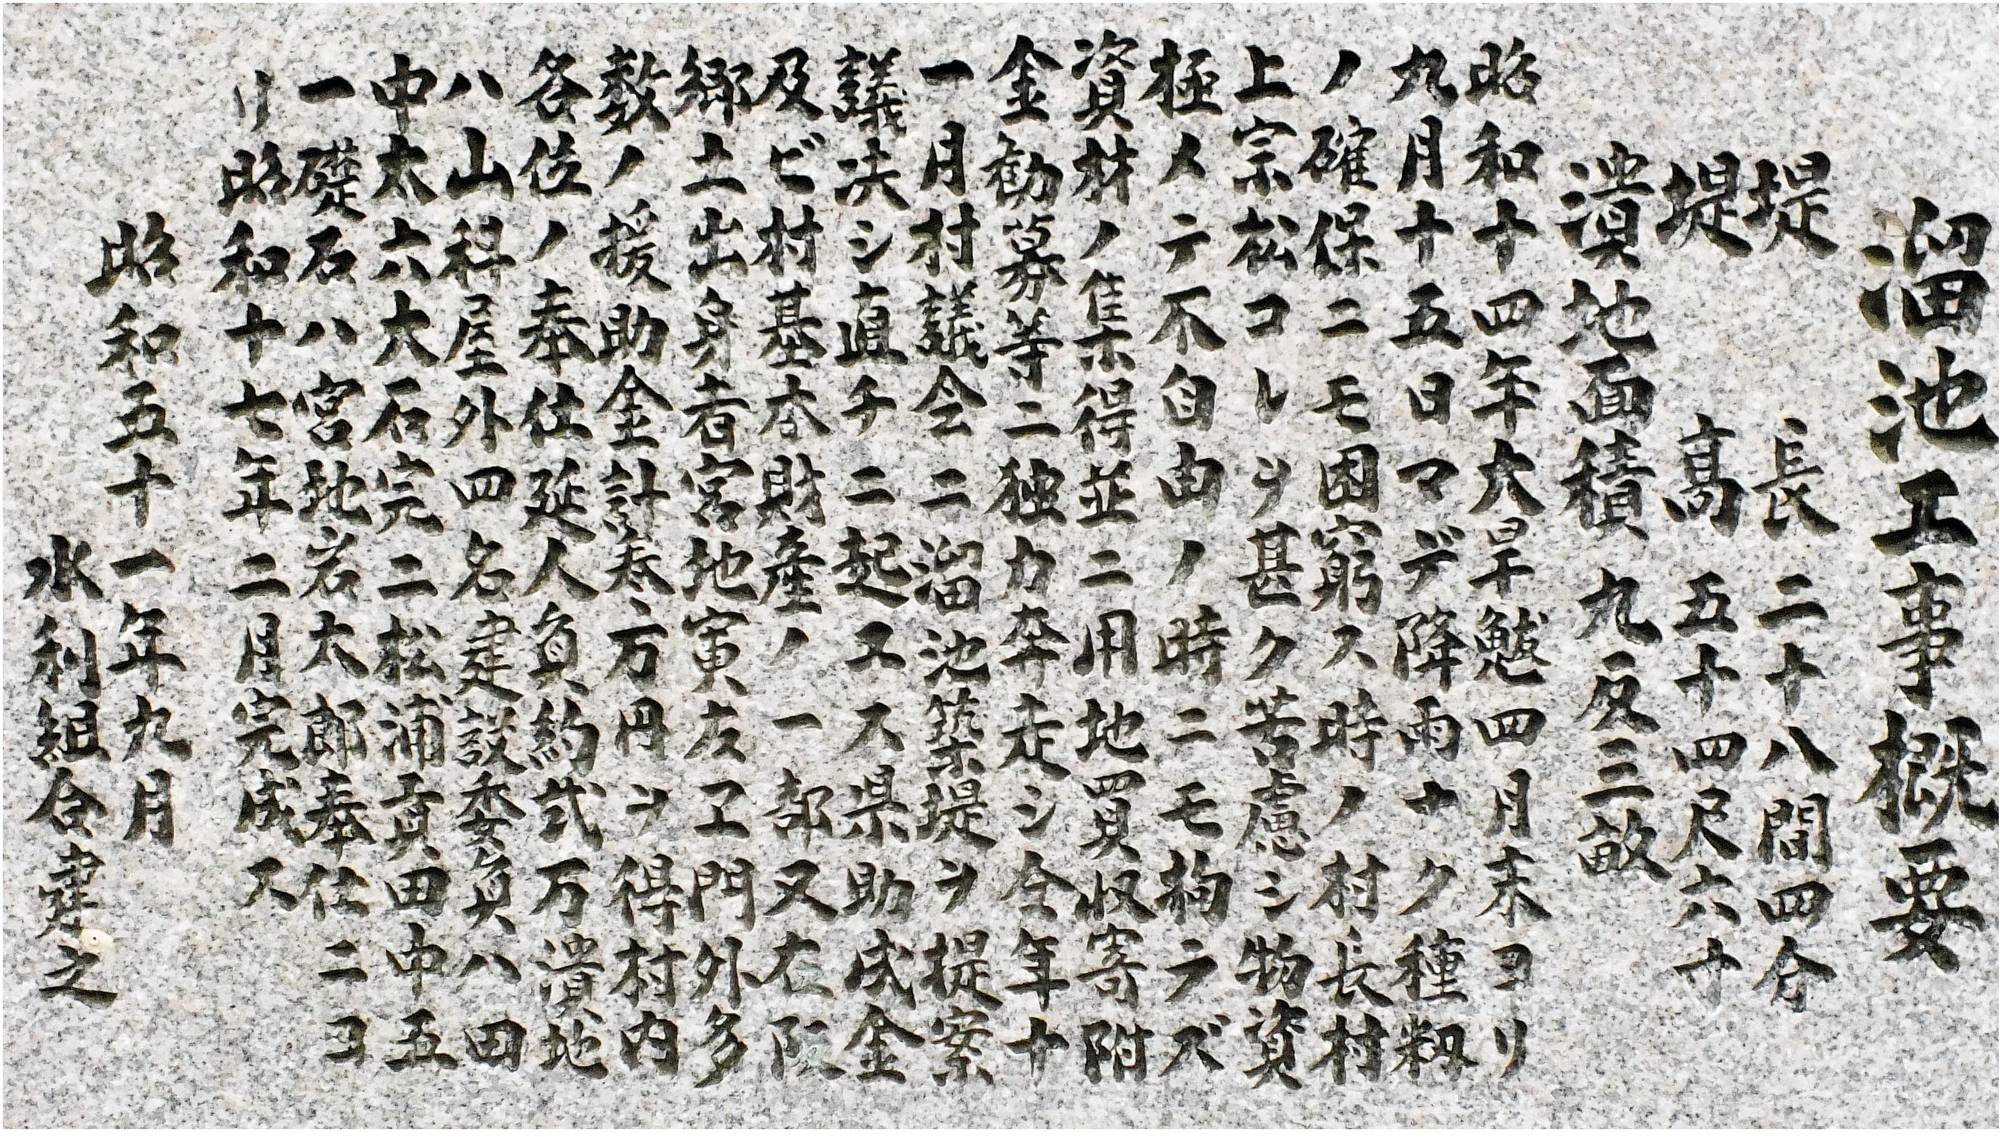 溜池工事概要
堤 長 二十八間四分
堤 高 五十四尺六寸
潰地面積 九反三畝
昭和十四年大旱魃四月末ヨリ
九月十五日マデ降雨ナク種籾
ノ確保ニモ困窮ス時ノ村長村
上宗松コレヲ甚ク苦慮シ物資
極メテ不自由ノ時ニモ拘ラズ
資材ノ集得並ニ用地買収寄附
金勧募等ニ独力奔走シ全年十
一月村議会ニ溜池築堤ヲ提案
議決シ直チニ起工ス県助成金
及ビ村基本財産ノ一部又在阪
郷土出身者宮地寅友ヱ門外多
数ノ援助金計参万円ヲ得村内
各位ノ奉仕延人負約弐万潰地
ハ山科屋外四名建設委負ハ田
中太六大石完二松浦貢田中五
一礎石ハ宮地岩太郎奉仕ニヨ
リ昭和十七年二月完成ス
昭和五十一年九月
水利組合建之